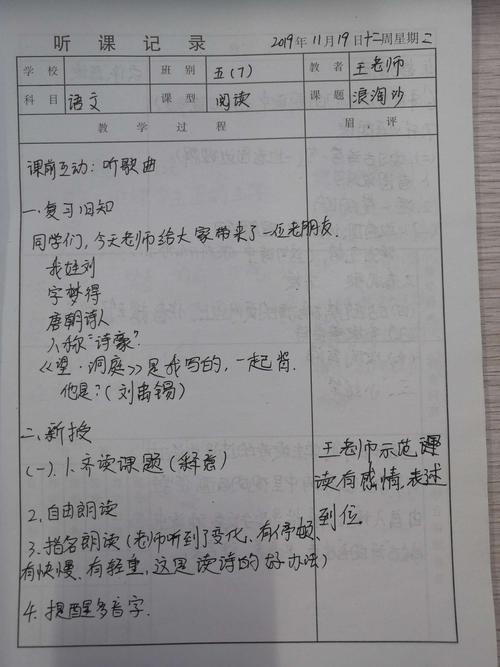 听课记录 2019年11月19日十二周星期二
学校 班别 五(7) 教者 王老师
科目 语文 课型 阅读 课题 浪淘沙
教学过程 眉评
课前互动:听歌曲
一.复习旧知
同学们,今天老师给大家带来了一位老朋友.
我姓刘
字梦得
唐朝诗人
人称“诗豪”
《望·洞庭》是我写的,一起背.
他是?(刘禹锡)
二、新授
(一).1.齐读课题(释音)
2.自由朗读
3.指名朗读(老师听到了变化,有停顿,
有快慢、有轻重,这是读诗的好办法)
4.提醒多音字.
王老师示范课
读有感情,表述
到位.